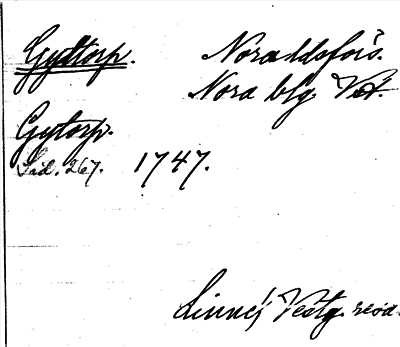 Gyttorp. Nora ldsfors.
Nora blg Vstm.
Gytorp.
Sid. 267. 1747.
Linnés Vestg. resa.